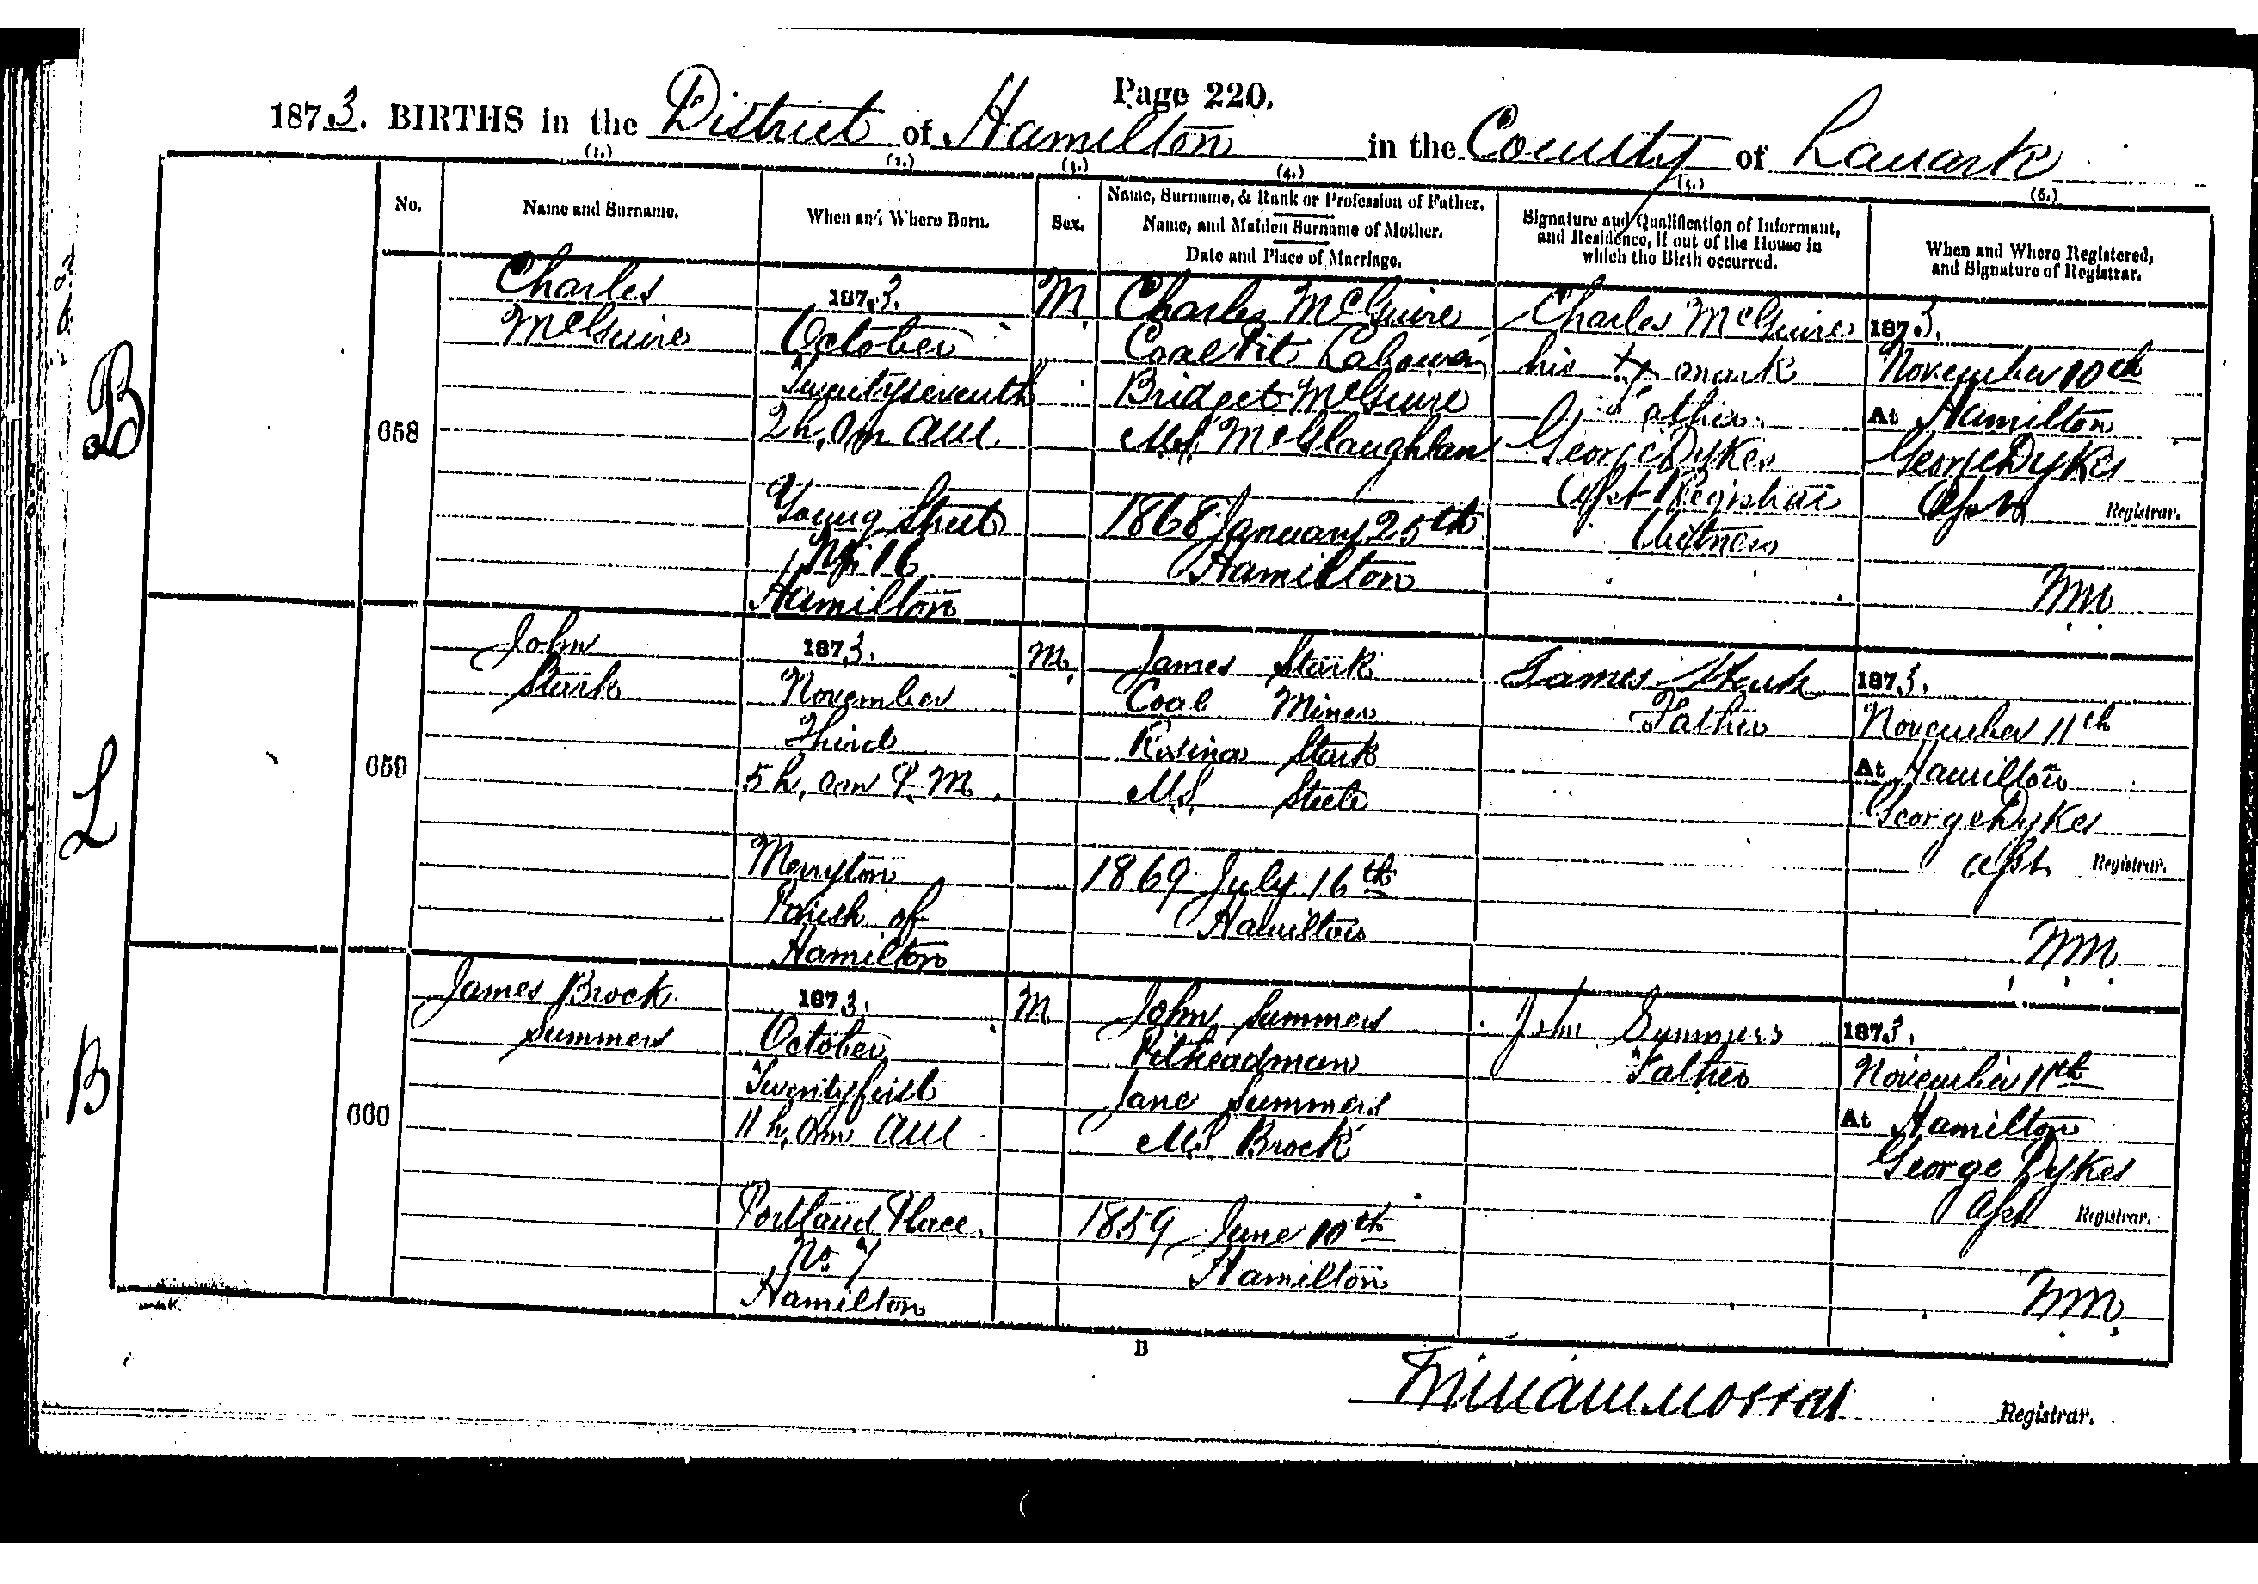 Page 220.
1873. BIRTHS in the District of Hamilton in the County of Lanark
(1.) (2.) (3.) (4.) (5.) (6.)
No.
Name and Surname.
When and Where Born.
Sex.
Name, Surname, & Rank or Profession of Father.
Name, and Maiden Surname of Mother.
Date and Place of Marriage.
Signature and Qualification of Informant,
and Residence, if out of the House in
which the Birth occurred.
When and Where Registered,
and Signature of Registrar.
B
658
Charles
McGuire
1873.
October
Twentyseventh
2h. 0m AM
Young Street
No. 16
Hamilton
M.
Charles McGuire
Coal Pit Labourer
Bridget McGuire
M.S. McGlaughlan
1868 January 25th
Hamilton
Charles McGuire
his x mark
Father
George Dykes
Asst Registrar
Witness
1873.
November 10th
At Hamilton
George Dykes
Asst Registrar.
WM.
L
659
John
Stark
1873.
November
Third
5h. 0m P.M.
Merryton
Parish of
Hamilton
M.
James Stark
Coal Miner
Rosina Stark
M.S. Steele
1869 July 16th
Hamilton
James Stark
Father
1873.
November 11th
At Hamilton
George Dykes
Asst Registrar.
WM.
B
660
James Brock
Summers
1873.
October
Twentyfirst
11h. 0m AM
Portland Place.
No. 7
Hamilton
M
John Summers
Pitheadman
Jane Summers
M.S. Brock
1859 June 10th
Hamilton
John Summers
Father
1873.
November 11th
At Hamilton
George Dykes
Asst Registrar.
WM.
B
William Moffat Registrar.